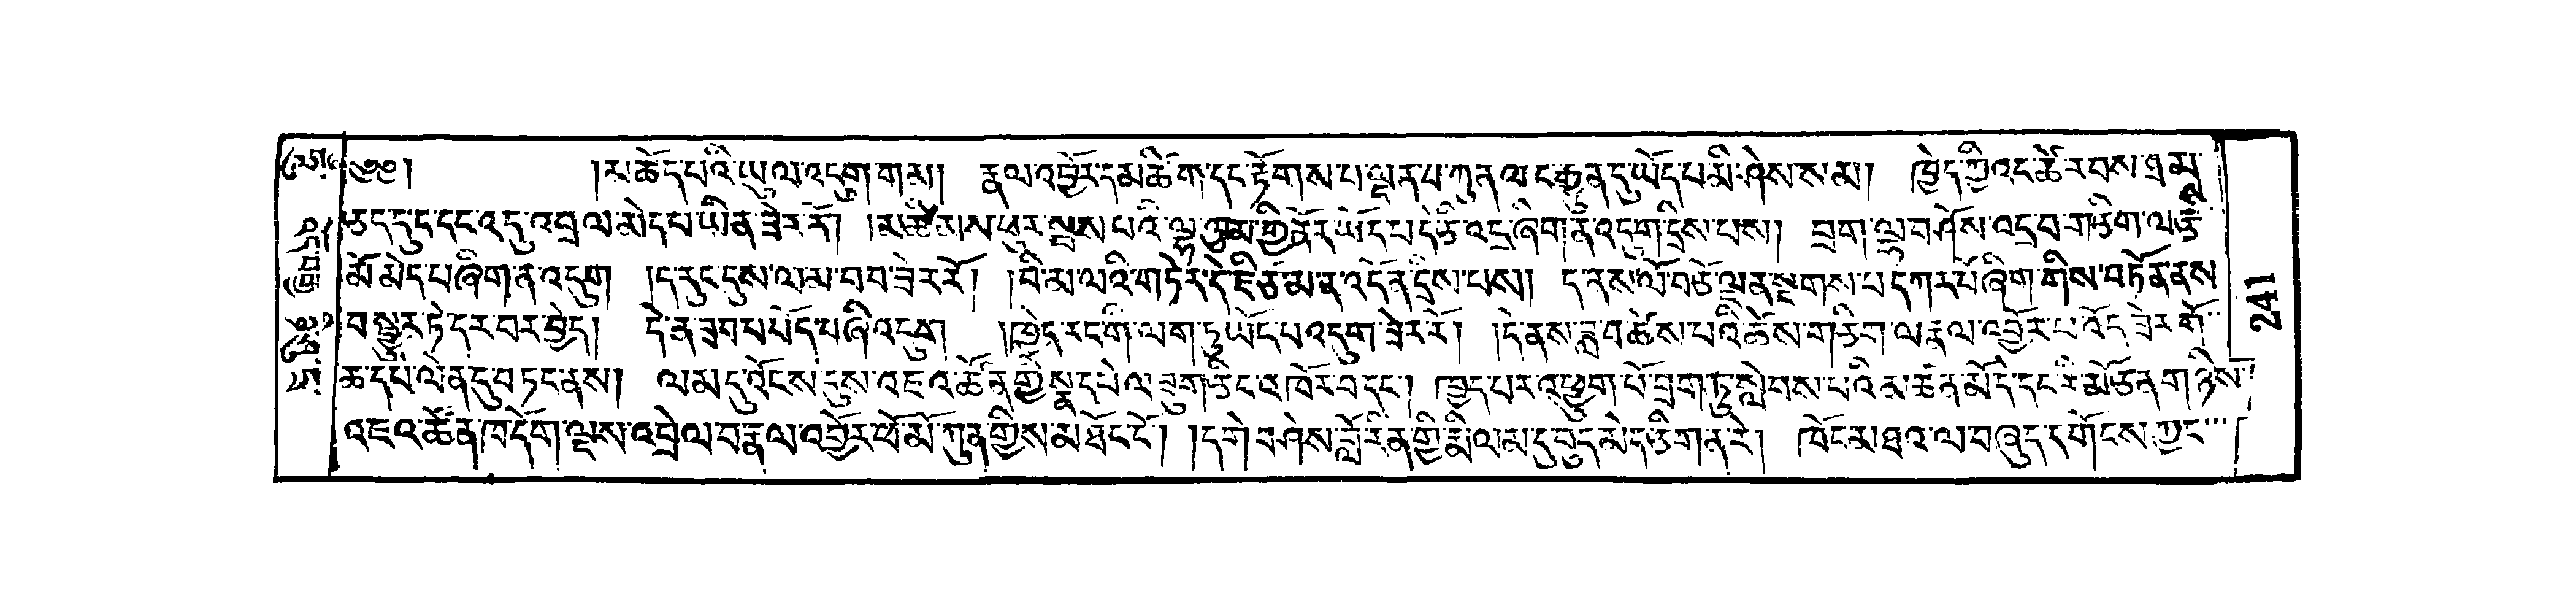 ༄༅། །མ་ཆོད་པའི་ཡུལ་འདུག་གམ། རྣལ་འབྱོར་དམ་ཚིག་དང་རྟོགས་པ་ལྡན་པ་ཀུན་ལ་ང་རྒྱུན་དུ་ཡོད་པ་མི་ཤེས་སམ། ཁྱེད་ཀྱི་འང་ཚེ་རབས་
ཅད་དུད་དང་འདུ་འབྲལ་མེད་པ་ཡིན་ཟེར་རོ། །མ་ཕུར་སྦས་པའི་ལྷ་ལྕམ་གྱི་ནོར་ཡོད་པ་དེ་ཅི་འདྲ་ཞིག་ན་འདུག་དྲིས་པས། བྲག་ལྟ་བ་ཤེས་འདྲ་བ་གཅིག་ལ་རྩི་
མོ་མེད་པ་ཞིག་ན་འདུག །ད་རུང་དུས་ལ་མ་བབ་ཟེར་རོ། །བི་མ་ལའི་གཏེར་དེ་ཇི་ཙམ་ན་འདོན་དྲིས་པས། ད་ནས་ལོ་བཅོ་ལྔ་ན་སྔགས་པ་དཀར་པོ་ཞིག་གིས་བཏོན་ནས
བསྒྱུར་ཏེ་དར་བར་བྱེད། དེ་ན་ཟབ་པ་པོད་པ་ཞི་འདུག །ཁྱེད་རང་གི་ལག་ཏུ་ཡོང་པ་འདུག་ཟེར་རོ། །དེ་ནས་ཟླ་བ་ཚེས་པའི་ཆོས་གཅིག་ལ་རྣལ་འབྱོར་པ་འོད་ཟེར་གོ་
ཆ་དཔེ་ལེན་དུ་བཏང་ནས། ལམ་དུ་འོངས་དུས་འཇའ་ཚོན་གྱི་སྣ་དཔེ་ལ་ཟུག་ཅིང་ང་ཁོར་བ་དང་། ཁྱད་པར་འཕྱུག་པོ་བྲག་ཏུ་སླེབས་པའི་མ་ཚན་མོ་དེ་དང་རི་མོ་ཙོན་གཉིས་
འཇའ་ཚོན་ཁ་དོག་ལྔས་འབྲེལ་བ་རྣལ་འབྱོར་ཕོ་མོ་ཀུན་གྱིས་མཐོང་ངོ་། །དགེ་བཤེས་བློ་རིན་གྱི་རྨི་ལམ་དུ་བུད་མེད་ཅིག་ན་རེ། ཁོང་མ་ཐའ་ལ་བཞུད་དགོངས་ཀྱང་